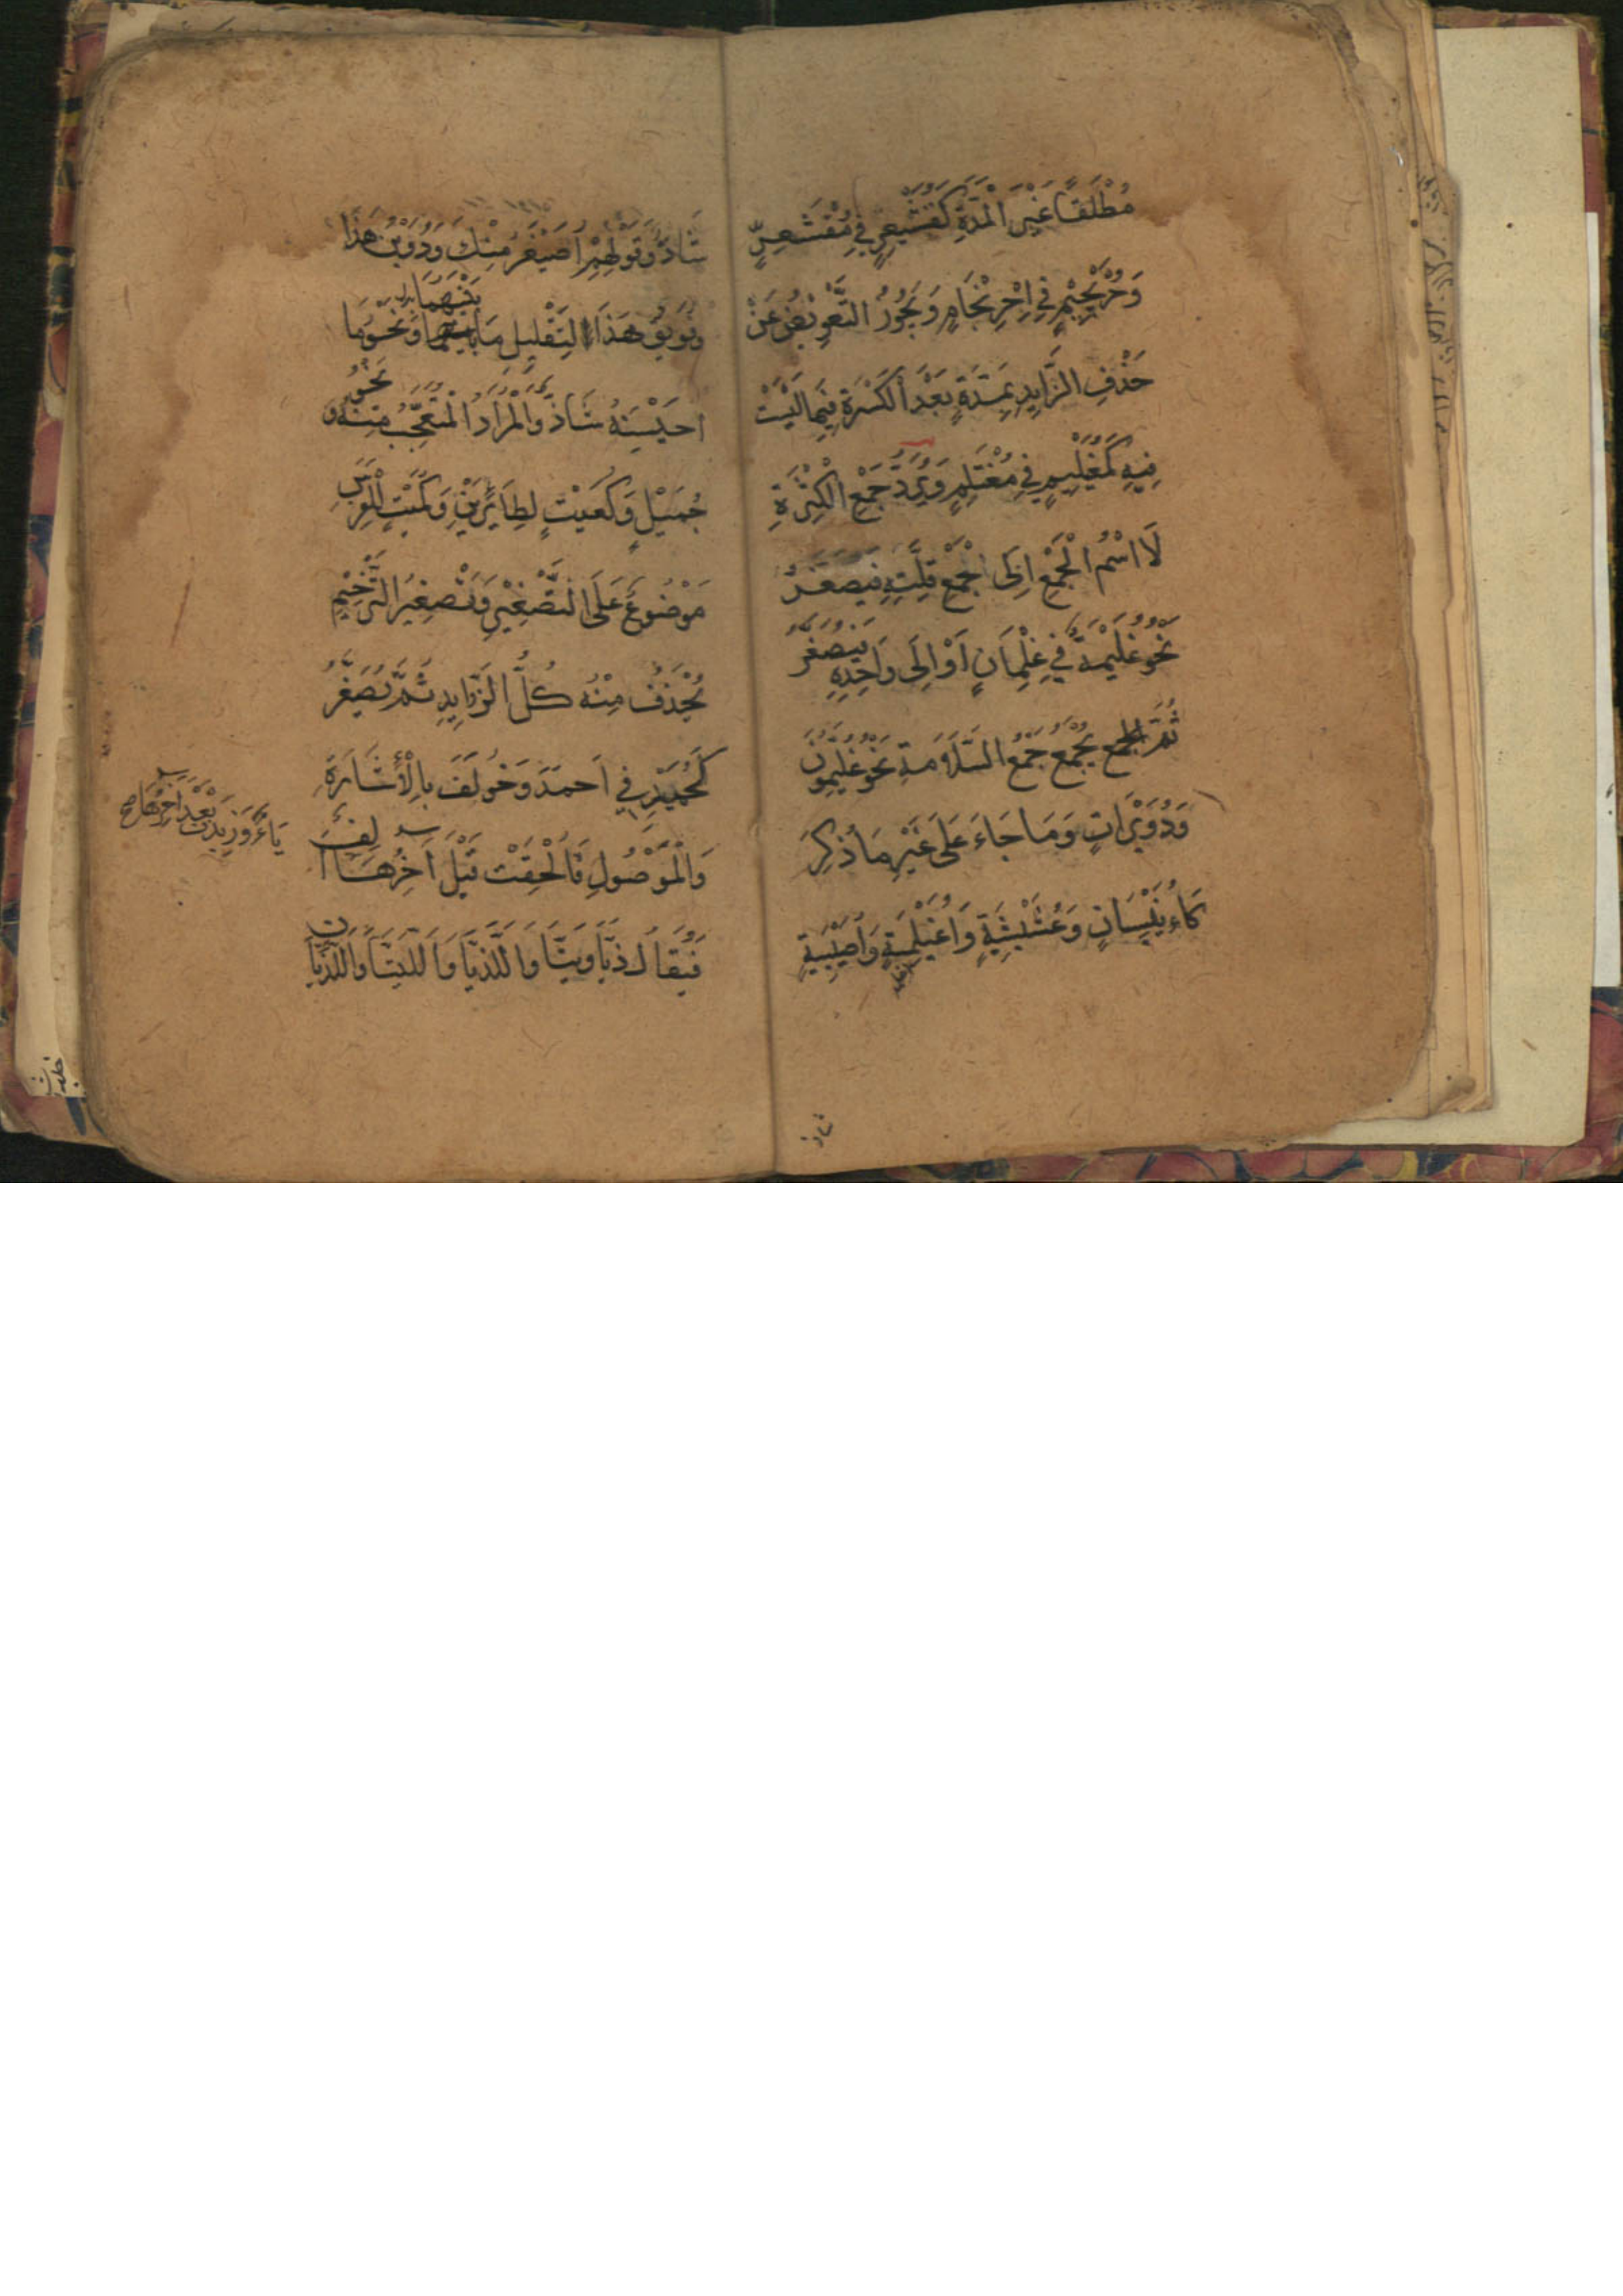 مُطْلَقًا غَيْرَ الْمَدَّةِ كَقُشَيْعِرٍ فِي مُقْشَعِرٍّ
وَحُرَيْجِيْمٍ فِي اِحْرِنْجَامٍ وَيَجُوزُ التَّعْوِيْضُ عَنْ
حَذْفِ الزَّايِدِ بِمَدَّةٍ بَعْدَ الْكَسْرَةِ فِيمَا لَيْسَتْ
فِيهِ كَمُغَيْلِيْمٍ فِي مُغْتَلِمٍ وَيُرَدُّ جَمْعُ الْكَثْرَةِ
لَا اسْمُ الْجَمْعِ اِلَى جَمْعِ قِلَّتِهِ فَيُصَغَّرُ
نَحْوُ غُلَيْمَةٍ فِي غِلْمَانٍ اَوْ اِلَى وَاحِدِهِ فَيُصَغَّرُ
ثُمَّ يُجْمَعُ جَمْعَ السَّلَامَةِ نَحْوُ غُلَيِّمُوْنَ
وَدُوَيْرَاتٍ وَمَا جَاءَ عَلَى غَيْرِ مَا ذُكِرَ
كَاُنَيْسَانٍ وَعُشَيْشِيَةٍ وَاُغَيْلِمَةٍ وَاُصَيْبِيَةٍ
شاذ
شَاذٌّ وَقَوْلُهُمْ اُصَيْغِرُ مِنْكَ وَدُوَيْنَ هَذَا
وَفُوَيْقَ هَذَا لِتَقْلِيْلِ مَا بَيْنَهُمَا وَنَحْوُ مَا
اُحَيْسِنَهُ شَاذٌّ وَالْمُرَادُ الْمُتَعَجَّبُ مِنْهُ وَنَحْوُ
جُمَيْلٍ وَكُعَيْتٍ لِطَايِرَيْنِ وَكُمَيْتٍ لِلْفَرَسِ
مَوْضُوعٌ عَلَى التَّصْغِيْرِ وَتَصْغِيْرُ التَّرْخِيْمِ
يُحْذَفُ مِنْهُ كُلُّ الزَّوَايِدِ ثُمَّ يُصَغَّرُ
كَحُمَيْدٍ فِي اَحْمَدَ وَخُولِفَ بِالْاِشَارَةِ
وَالْمَوْصُولِ فَاُلْحِقَتْ قَبْلَ آخِرِهَا
يَاءٌ وَزِيْدَتْ بَعْدَ اخِرِهَا
اَلِفٌ
فَيُقَالُ ذَيَّا وَتَيَّا وَاللَّذَيَّا وَاللَّتَيَّا وَاللَّذَيَّانِ